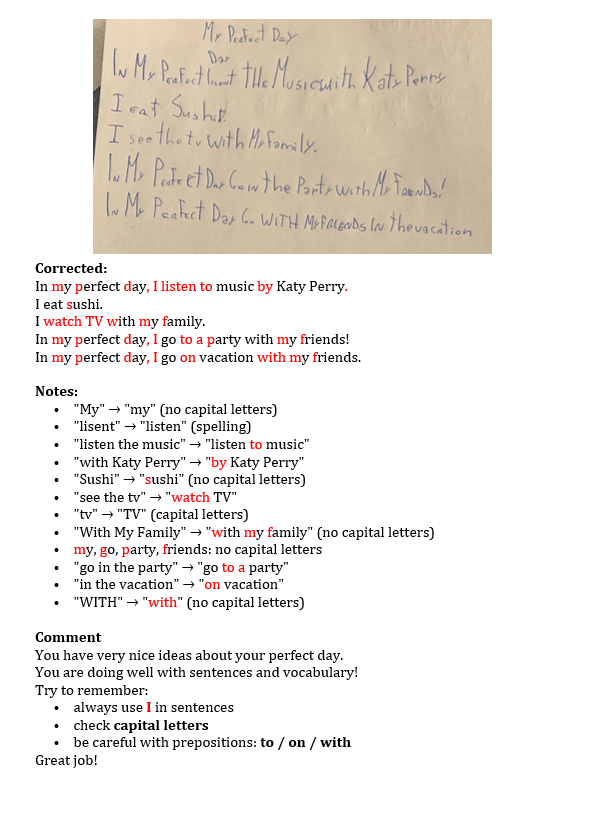 My Perfect Day
Day
In My Perfect lisent the Music with Katy Perry
I eat Sushi.
I see the tv With My Family.
In My Perfect Day Go in the Party with My Friends!
In My Perfect Day Go WITH My FRIENDS In the vacation
Corrected:
In my perfect day, I listen to music by Katy Perry.
I eat sushi.
I watch TV with my family.
In my perfect day, I go to a party with my friends!
In my perfect day, I go on vacation with my friends.
Notes:
• "My" → "my" (no capital letters)
• "lisent" → "listen" (spelling)
• "listen the music" → "listen to music"
• "with Katy Perry" → "by Katy Perry"
• "Sushi" → "sushi" (no capital letters)
• "see the tv" → "watch TV"
• "tv" → "TV" (capital letters)
• "With My Family" → "with my family" (no capital letters)
• my, go, party, friends: no capital letters
• "go in the party" → "go to a party"
• "in the vacation" → "on vacation"
• "WITH" → "with" (no capital letters)
Comment
You have very nice ideas about your perfect day.
You are doing well with sentences and vocabulary!
Try to remember:
• always use I in sentences
• check capital letters
• be careful with prepositions: to / on / with
Great job!